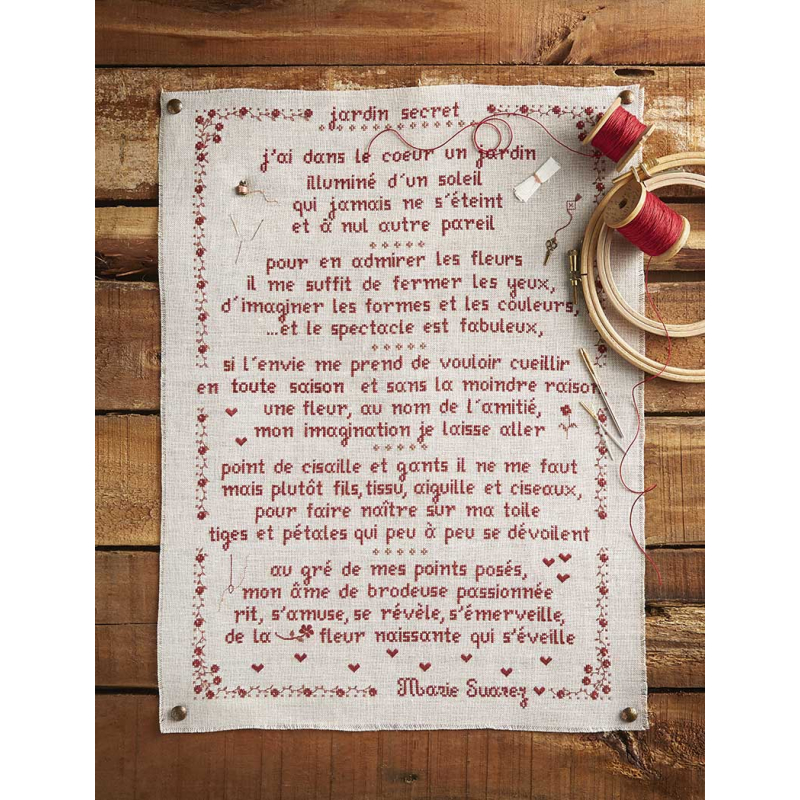 jardin secret
j'ai dans le coeur un jardin
illuminé d'un soleil
qui jamais ne s'éteint
et à nul autre pareil
pour en admirer les fleurs
il me suffit de fermer les yeux,
d'imaginer les formes et les couleurs,
...et le spectacle est fabuleux,
si l'envie me prend de vouloir cueillir
en toute saison et sans la moindre raison
une fleur, au nom de l'amitié,
mon imagination je laisse aller
point de cisaille et gants il ne me faut
mais plutôt fils, tissu, aiguille et ciseaux,
pour faire naître sur ma toile
tiges et pétales qui peu à peu se dévoilent
au gré de mes points posés,
mon âme de brodeuse passionnée
rit, s'amuse, se révèle, s'émerveille,
de la fleur naissante qui s'éveille
Marie Suarez